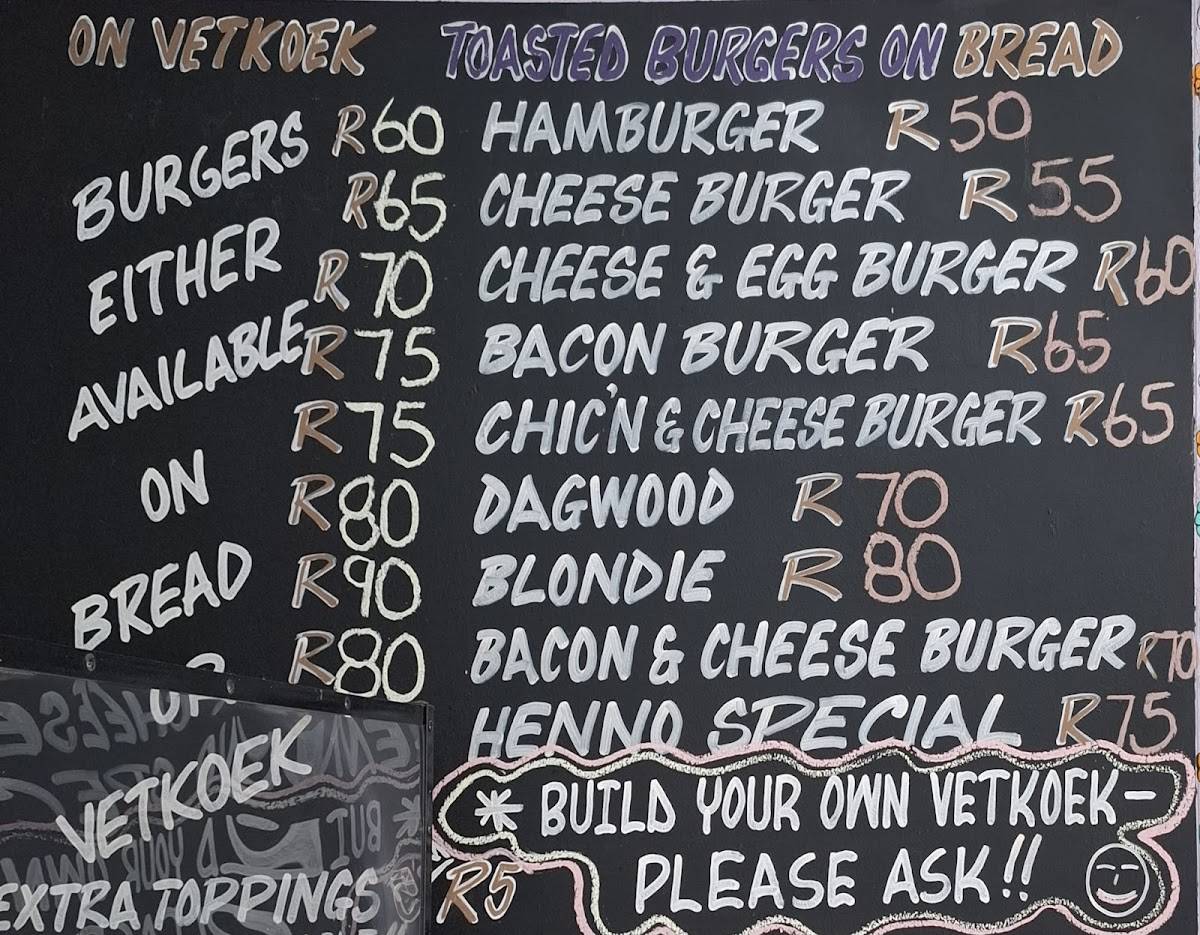 ON VETKOEK TOASTED BURGERS ON BREAD
R60 HAMBURGER R50
R65 CHEESE BURGER R55
R70 CHEESE & EGG BURGER R60
R75 BACON BURGER R65
R75 CHIC'N & CHEESE BURGER R65
R80 DAGWOOD R70
R90 BLONDIE R80
R80 BACON & CHEESE BURGER R70
HENNO SPECIAL R75
BURGERS
EITHER
AVAILABLE
ON
BREAD
OR
VETKOEK
EXTRA TOPPINGS R5
* BUILD YOUR OWN VETKOEK-
PLEASE ASK!!